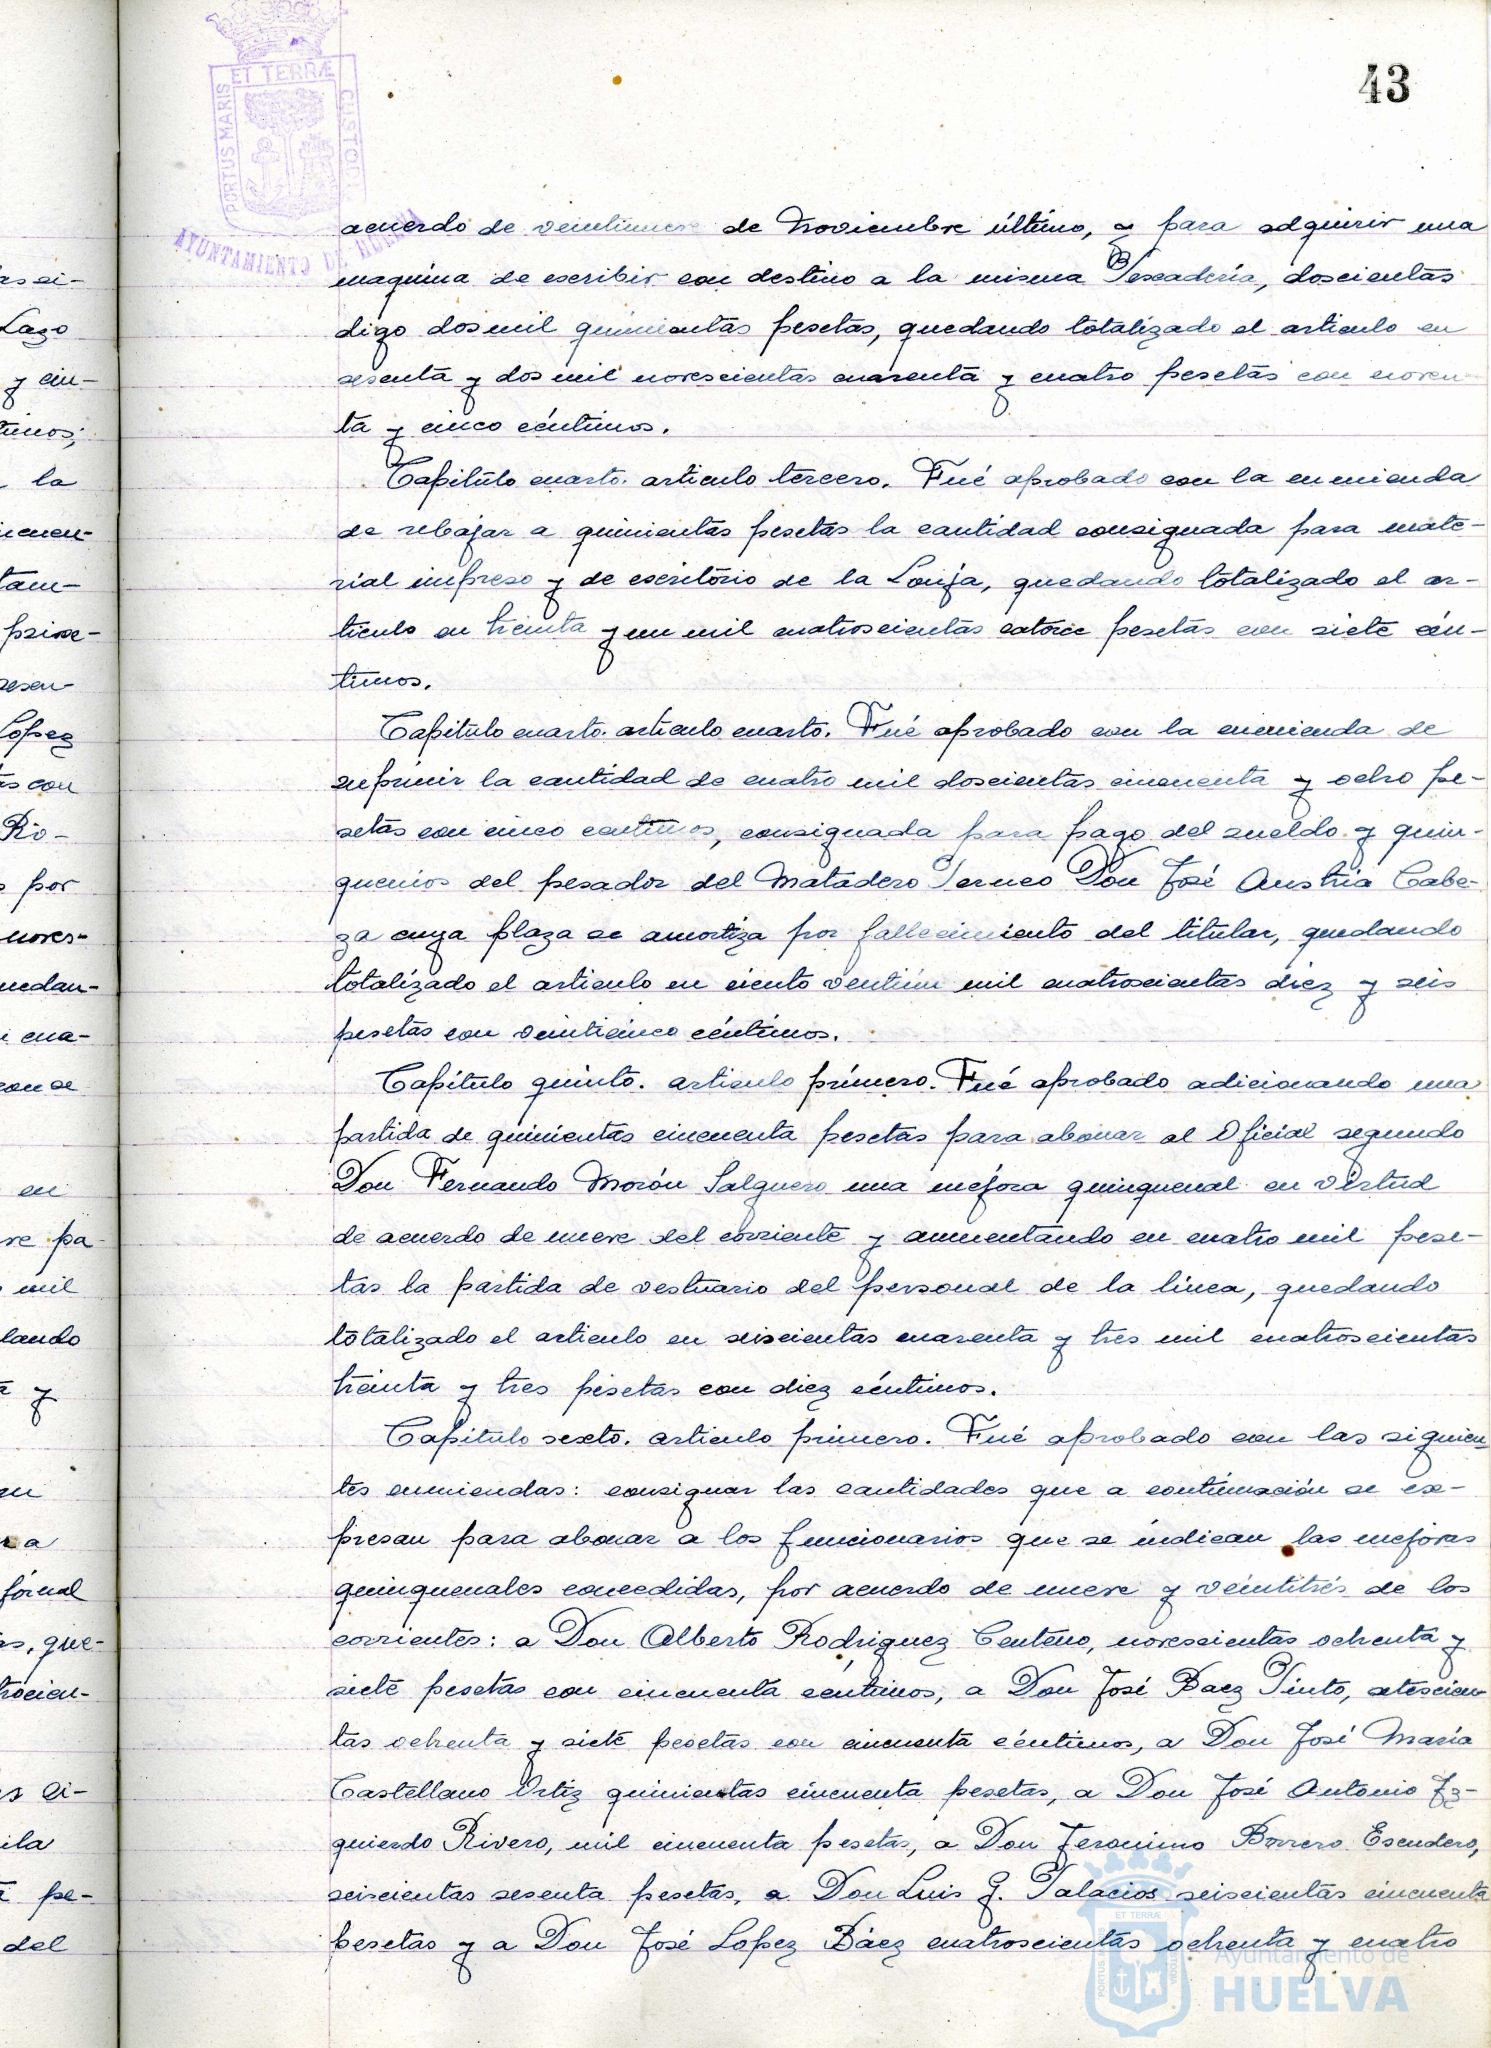 43
PORTUS MARIS ET TERRÆ CUSTODI
AYUNTAMIENTO DE HUELVA
acuerdo de veintinueve de Noviembre último, y para adquirir una
maquina de escribir con destino a la misma Pescadería, doscientas
digo dos mil quinientas pesetas, quedando totalizado el articulo en
sesenta y dos mil novescientas cuarenta y cuatro pesetas con noven-
ta y cinco céntimos.
Capitulo cuarto. articulo tercero. Fué aprobado con la enmienda
de rebajar a quinientas pesetas la cantidad consignada para mate-
rial impreso y de escritorio de la Lonja, quedando totalizado el ar-
ticulo en treinta y un mil cuatroscientas catorce pesetas con siete cén-
timos.
Capitulo cuarto. articulo cuarto. Fué aprobado con la enmienda de
suprimir la cantidad de cuatro mil doscientas cincuenta y ocho pe-
setas con cinco centimos, consignada para pago del sueldo y quin-
quenios del pesador del Matadero Porcuo Don José Austria Cabe-
za cuya plaza se amortiza por fallecimiento del titular, quedando
totalizado el articulo en ciento ventiún mil cuatroscientas diez y seis
pesetas con veinticinco céntimos.
Capítulo quinto. articulo primero. Fué aprobado adicionando una
partida de quinientas cincuenta pesetas para abonar al Oficial segundo
Don Fernando Morón Salguero una mejora quinquenal en virtud
de acuerdo de nueve del corriente y aumentando en cuatro mil pese-
tas la partida de vestuario del personal de la línea, quedando
totalizado el articulo en seiscientas cuarenta y tres mil cuatroscientas
treinta y tres pesetas con diez céntimos.
Capitulo sexto. articulo primero. Fué aprobado con las siguien-
tes enmiendas: consignar las cantidades que a continuación se ex-
presan para abonar a los funcionarios que se indican las mejoras
quinquenales concedidas, por acuerdo de nueve y veintitrés de los
corrientes: a Don Alberto Rodriguez Centeno, novescientas ochenta y
siete pesetas con cincuenta céntimos, a Don José Baez Pinto, setescien-
tas ochenta y siete pesetas con cincuenta céntimos, a Don José María
Castellano Ortiz quinientas cincuenta pesetas, a Don José Antonio Iz-
quierdo Rivero, mil cincuenta pesetas, a Don Jeronimo Borrero Escudero,
seiscientas sesenta pesetas, a Don Luis G. Palacios seiscientas cincuenta
pesetas y a Don José Lopez Báez cuatroscientas ochenta y cuatro
Ayuntamiento de
HUELVA